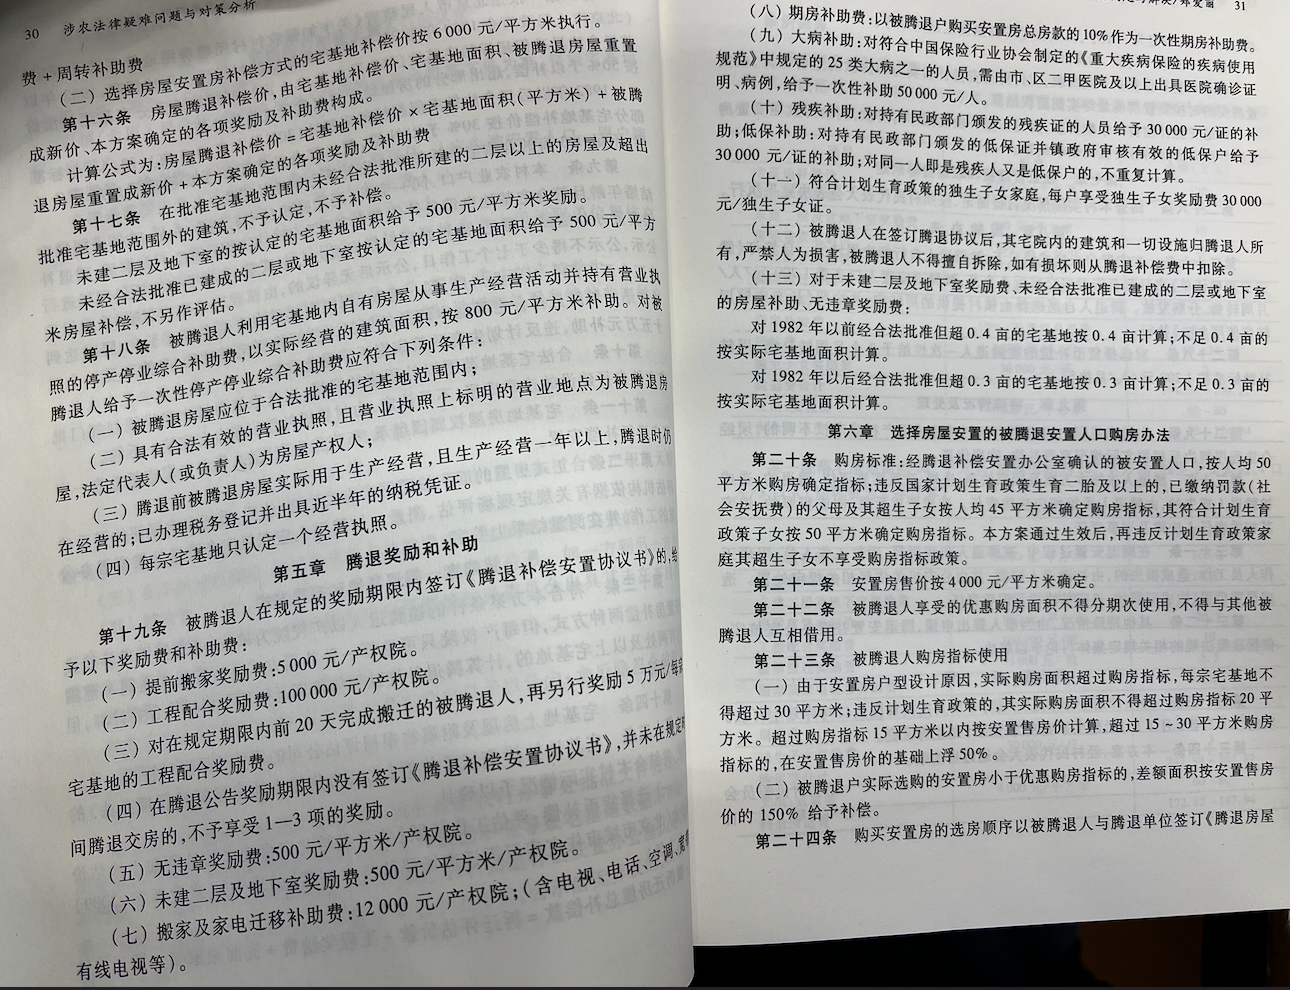 30 涉农法律疑难问题与对策分析
费+周转补助费
（二）选择房屋安置房补偿方式的宅基地补偿价按6 000元/平方米执行。
第十六条 房屋腾退补偿价,由宅基地补偿价、宅基地面积、被腾退房屋重置
成新价、本方案确定的各项奖励及补助费构成。
计算公式为:房屋腾退补偿价=宅基地补偿价×宅基地面积(平方米)+被腾
退房屋重置成新价+本方案确定的各项奖励及补助费
第十七条 在批准宅基地范围内未经合法批准所建的二层以上的房屋及超出
批准宅基地范围外的建筑,不予认定,不予补偿。
未建二层及地下室的按认定的宅基地面积给予500元/平方米奖励。
未经合法批准已建成的二层或地下室按认定的宅基地面积给予500元/平方
米房屋补偿,不另作评估。
第十八条 被腾退人利用宅基地内自有房屋从事生产经营活动并持有营业执
照的停产停业综合补助费,以实际经营的建筑面积,按800元/平方米补助。对被
腾退人给予一次性停产停业综合补助费应符合下列条件:
（一）被腾退房屋应位于合法批准的宅基地范围内;
（二）具有合法有效的营业执照,且营业执照上标明的营业地点为被腾退房
屋,法定代表人(或负责人)为房屋产权人;
（三）腾退前被腾退房屋实际用于生产经营,且生产经营一年以上,腾退时仍
在经营的;已办理税务登记并出具近半年的纳税凭证。
（四）每宗宅基地只认定一个经营执照。
第五章 腾退奖励和补助
第十九条 被腾退人在规定的奖励期限内签订《腾退补偿安置协议书》的,给
予以下奖励费和补助费:
（一）提前搬家奖励费:5 000元/产权院。
（二）工程配合奖励费:100 000元/产权院。
（三）对在规定期限内前20天完成搬迁的被腾退人,再另行奖励5万元/每宗
宅基地的工程配合奖励费。
（四）在腾退公告奖励期限内没有签订《腾退补偿安置协议书》,并未在规定时
间腾退交房的,不予享受1—3项的奖励。
（五）无违章奖励费:500元/平方米/产权院。
（六）未建二层及地下室奖励费:500元/平方米/产权院。
（七）搬家及家电迁移补助费:12 000元/产权院;(含电视、电话、空调、宽带、
有线电视等)。
31
（八）期房补助费:以被腾退户购买安置房总房款的10%作为一次性期房补助费。
（九）大病补助:对符合中国保险行业协会制定的《重大疾病保险的疾病使用
规范》中规定的25类大病之一的人员,需由市、区二甲医院及以上出具医院确诊证
明、病例,给予一次性补助50 000元/人。
（十）残疾补助:对持有民政部门颁发的残疾证的人员给予30 000元/证的补
助;低保补助:对持有民政部门颁发的低保证并镇政府审核有效的低保户给予
30 000元/证的补助;对同一人即是残疾人又是低保户的,不重复计算。
（十一）符合计划生育政策的独生子女家庭,每户享受独生子女奖励费30 000
元/独生子女证。
（十二）被腾退人在签订腾退协议后,其宅院内的建筑和一切设施归腾退人所
有,严禁人为损害,被腾退人不得擅自拆除,如有损坏则从腾退补偿费中扣除。
（十三）对于未建二层及地下室奖励费、未经合法批准已建成的二层或地下室
的房屋补助、无违章奖励费:
对1982年以前经合法批准但超0.4亩的宅基地按0.4亩计算;不足0.4亩的
按实际宅基地面积计算。
对1982年以后经合法批准但超0.3亩的宅基地按0.3亩计算;不足0.3亩的
按实际宅基地面积计算。
第六章 选择房屋安置的被腾退安置人口购房办法
第二十条 购房标准:经腾退补偿安置办公室确认的被安置人口,按人均50
平方米购房确定指标;违反国家计划生育政策生育二胎及以上的,已缴纳罚款(社
会安抚费)的父母及其超生子女按人均45平方米确定购房指标,其符合计划生育
政策子女按50平方米确定购房指标。本方案通过生效后,再违反计划生育政策家
庭其超生子女不享受购房指标政策。
第二十一条 安置房售价按4 000元/平方米确定。
第二十二条 被腾退人享受的优惠购房面积不得分期次使用,不得与其他被
腾退人互相借用。
第二十三条 被腾退人购房指标使用
（一）由于安置房户型设计原因,实际购房面积超过购房指标,每宗宅基地不
得超过30平方米;违反计划生育政策的,其实际购房面积不得超过购房指标20平
方米。超过购房指标15平方米以内按安置售房价计算,超过15~30平方米购房
指标的,在安置售房价的基础上浮50%。
（二）被腾退户实际选购的安置房小于优惠购房指标的,差额面积按安置售房
价的150%给予补偿。
第二十四条 购买安置房的选房顺序以被腾退人与腾退单位签订《腾退房屋